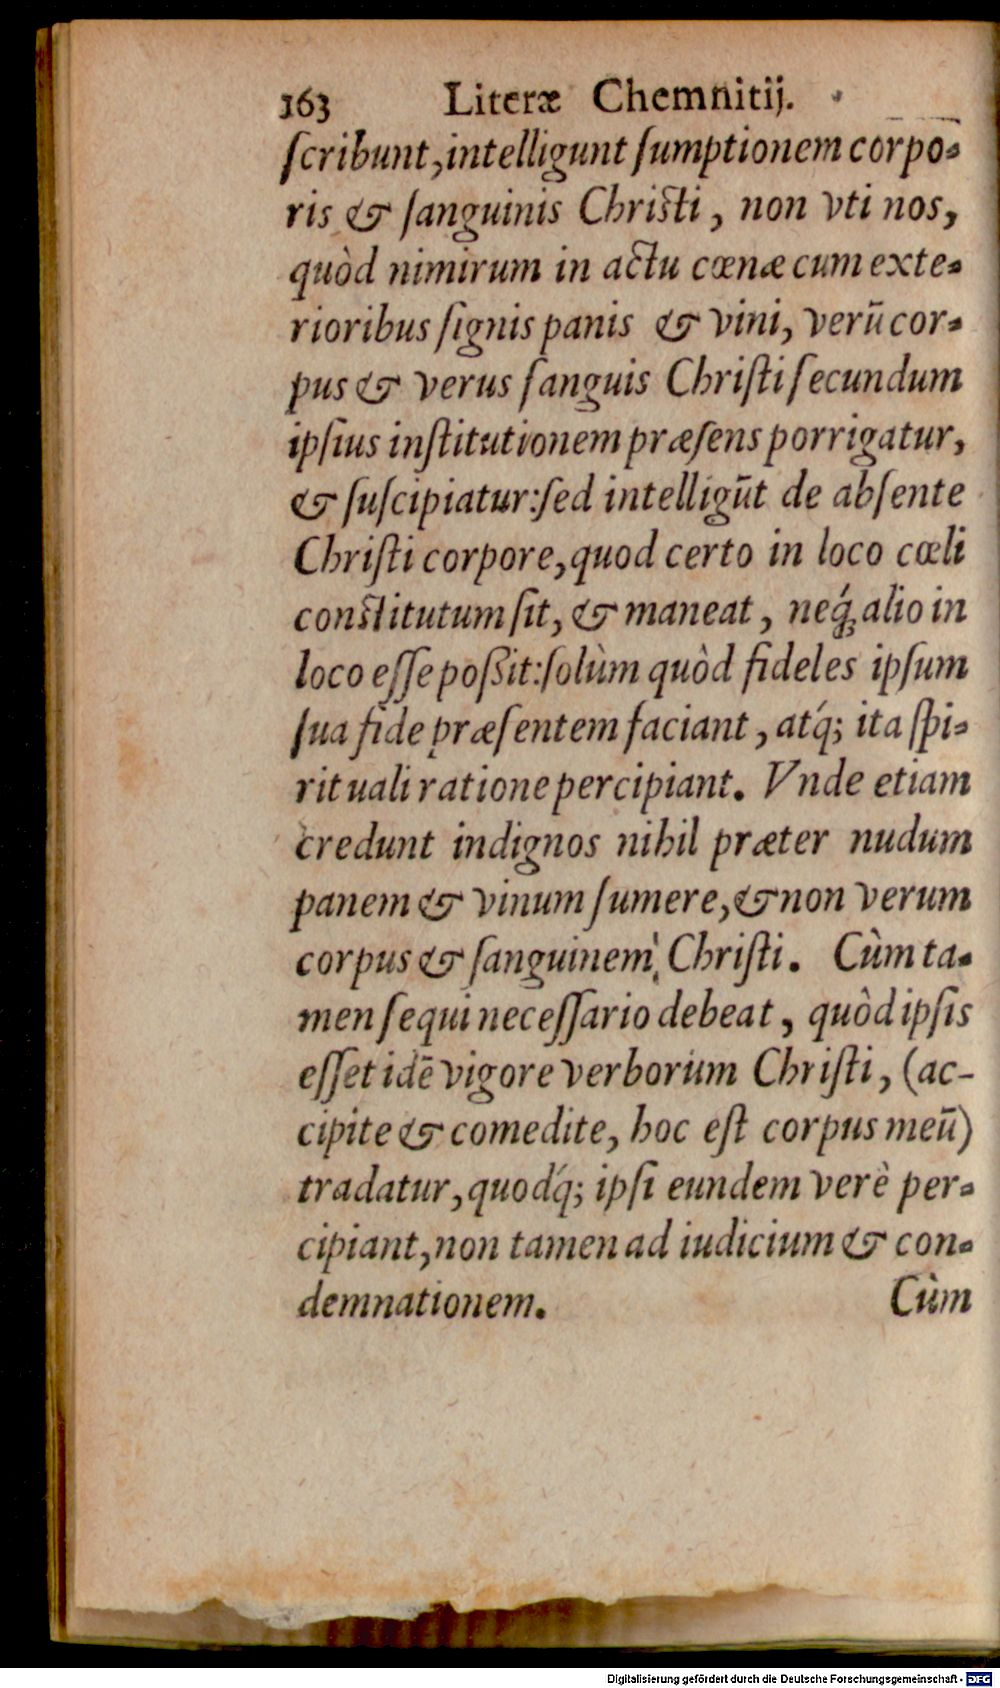 163 Literæ Chemnitij.
ſcribunt, intelligunt ſumptionem corpo-
ris & ſanguinis Chriſti, non vti nos,
quòd nimirum in actu cœnæ cum exte-
rioribus ſignis panis & vini, verū cor-
pus & verus ſanguis Chriſti ſecundum
ipſius inſtitutionem præſens porrigatur,
& ſuſcipiatur: ſed intelligūt de abſente
Chriſti corpore, quod certo in loco cœli
conſtitutum ſit, & maneat, neq́; alio in
loco eſſe poßit: ſolùm quòd fideles ipſum
ſua fide præſentem faciant, atq́; ita ſpi-
rituali ratione percipiant. Vnde etiam
credunt indignos nihil præter nudum
panem & vinum ſumere, & non verum
corpus & ſanguinem Chriſti. Cùm ta-
men ſequi neceſſario debeat, quòd ipſis
eſſet idē vigore verborum Chriſti, (ac-
cipite & comedite, hoc eſt corpus meū)
tradatur, quodq́; ipſi eundem verè per-
cipiant, non tamen ad iudicium & con-
demnationem. Cùm
Digitalisierung gefördert durch die Deutsche Forschungsgemeinschaft - DFG